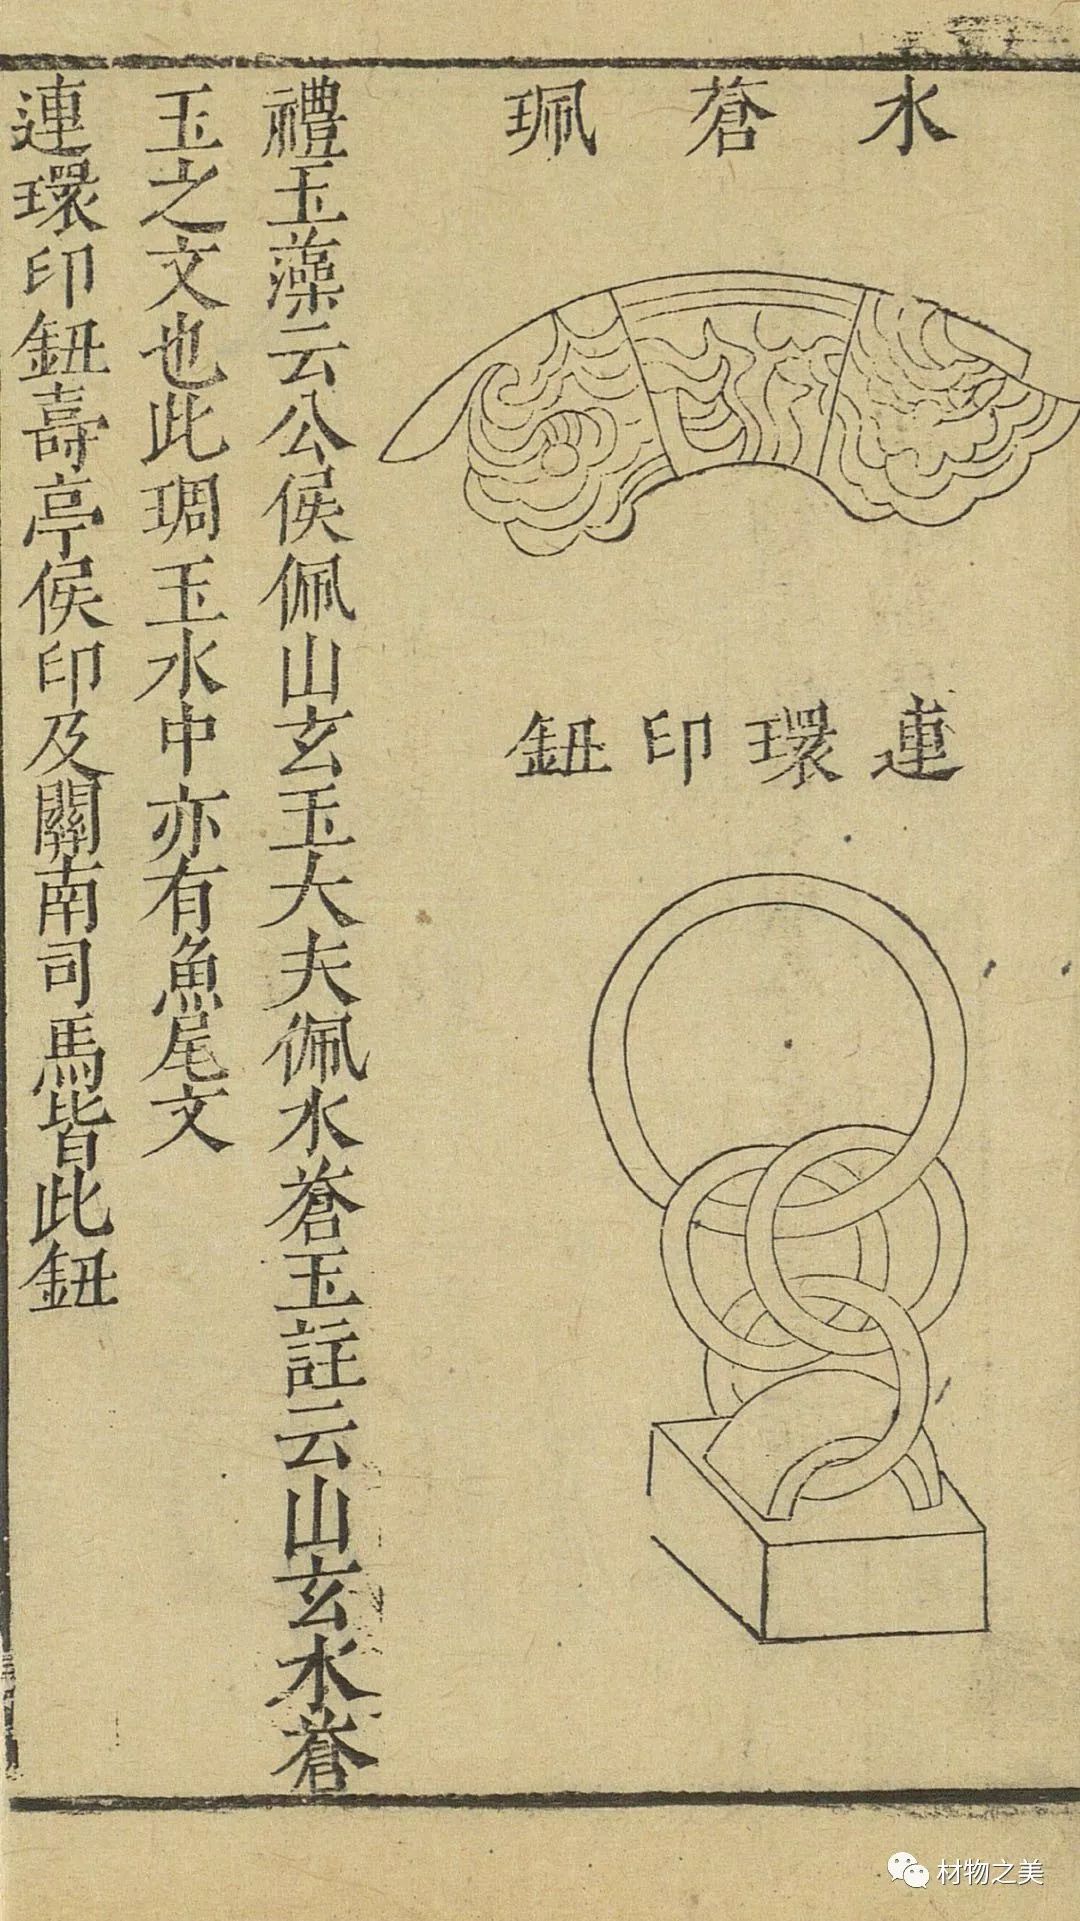 水蒼珮
連環印鈕
禮玉藻云公侯佩山玄玉大夫佩水蒼玉註云山玄水蒼
玉之文也此琱玉水中亦有魚尾文
連環印鈕壽亭侯印及關南司馬皆此鈕
材物之美